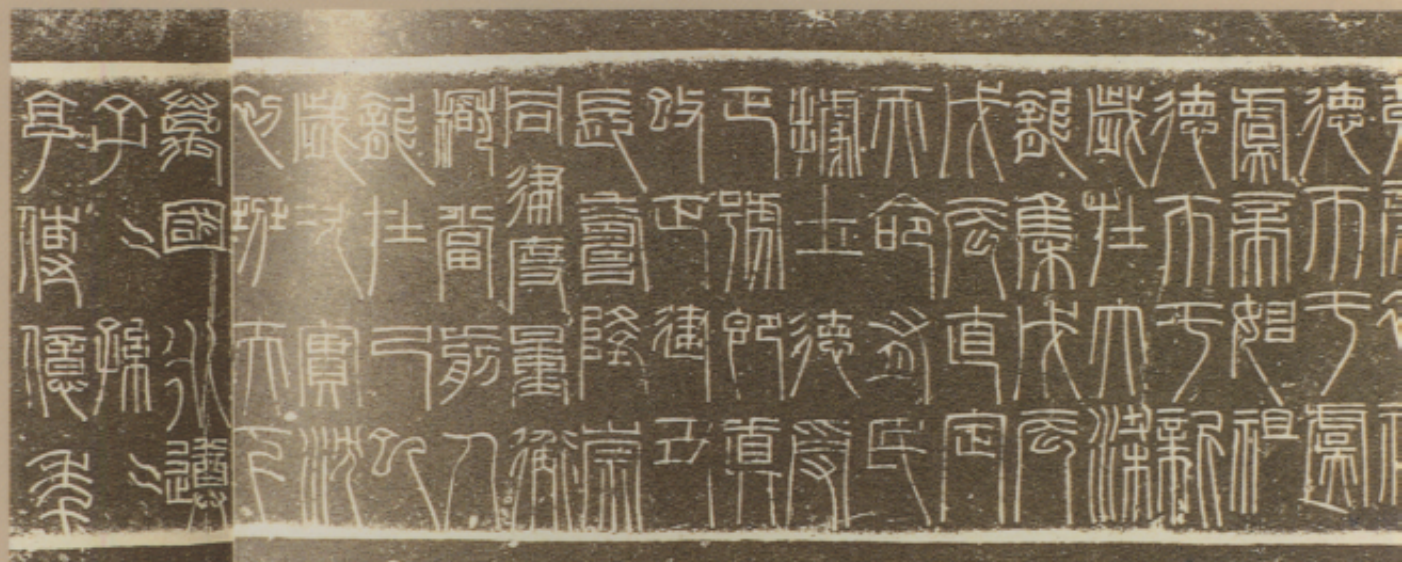 德帀于虞
虞帝始祖
德帀于新
歲在大梁
龍集戊辰
戊辰直定
天命有民
據土德受
正號即真
改正建丑
長壽隆崇
同律度量衡
稽當前人
龍在己巳
歲次實沈
初班天下
萬國永遵
子〻孫〻
亨傳億年